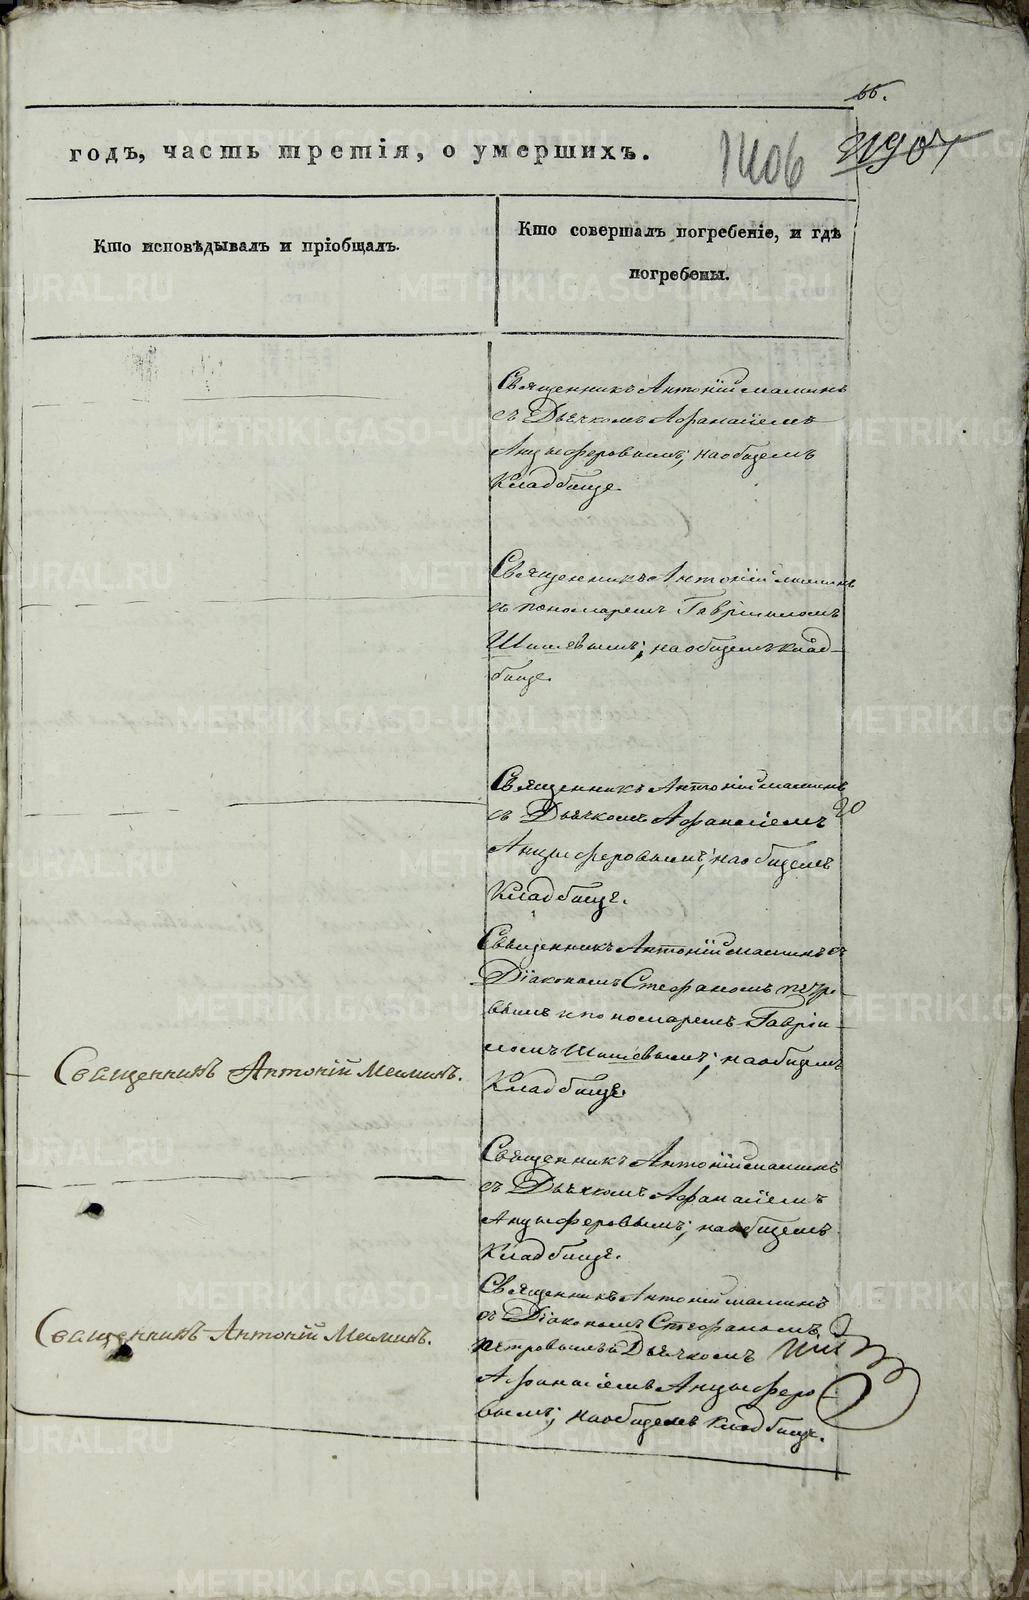 66.
годъ, часть третія, о умершихъ.
1406
Кто исповѣдывалъ и пріобщалъ.
Кто совершалъ погребеніе, и гдѣ
погребены.
Священникъ Антоній Маминъ
съ Дьячкомъ Афанасіемъ
Анцыферовымъ; на общемъ
Кладбище
Священникъ Антоній Маминъ
съ пономаремъ Гавріиломъ
Шишевымъ; на общемъ клад-
бище.
Священникъ Антоній Маминъ
съ Дьячкомъ Афанасіемъ
Анцыферовымъ; на общемъ
Кладбище.
Священникъ Антоній Маминъ съ
Діакономъ Стефаномъ Петро-
вымъ и пономаремъ Гавріи-
ломъ Шишевымъ; на общемъ
Кладбище.
Священникъ Антоній Маминъ.
Священникъ Антоній Маминъ
съ Дьячкомъ Афанасіемъ
Анцыферовымъ; на общемъ
Кладбище.
Священникъ Антоній Маминъ
съ Діакономъ Стефаномъ
Петровымъ и Дьячкомъ
Афанасіемъ Анцыферо-
вымъ; на общемъ кладбище.
Священникъ Антоній Маминъ.
METRIKI.GASO-URAL.RU